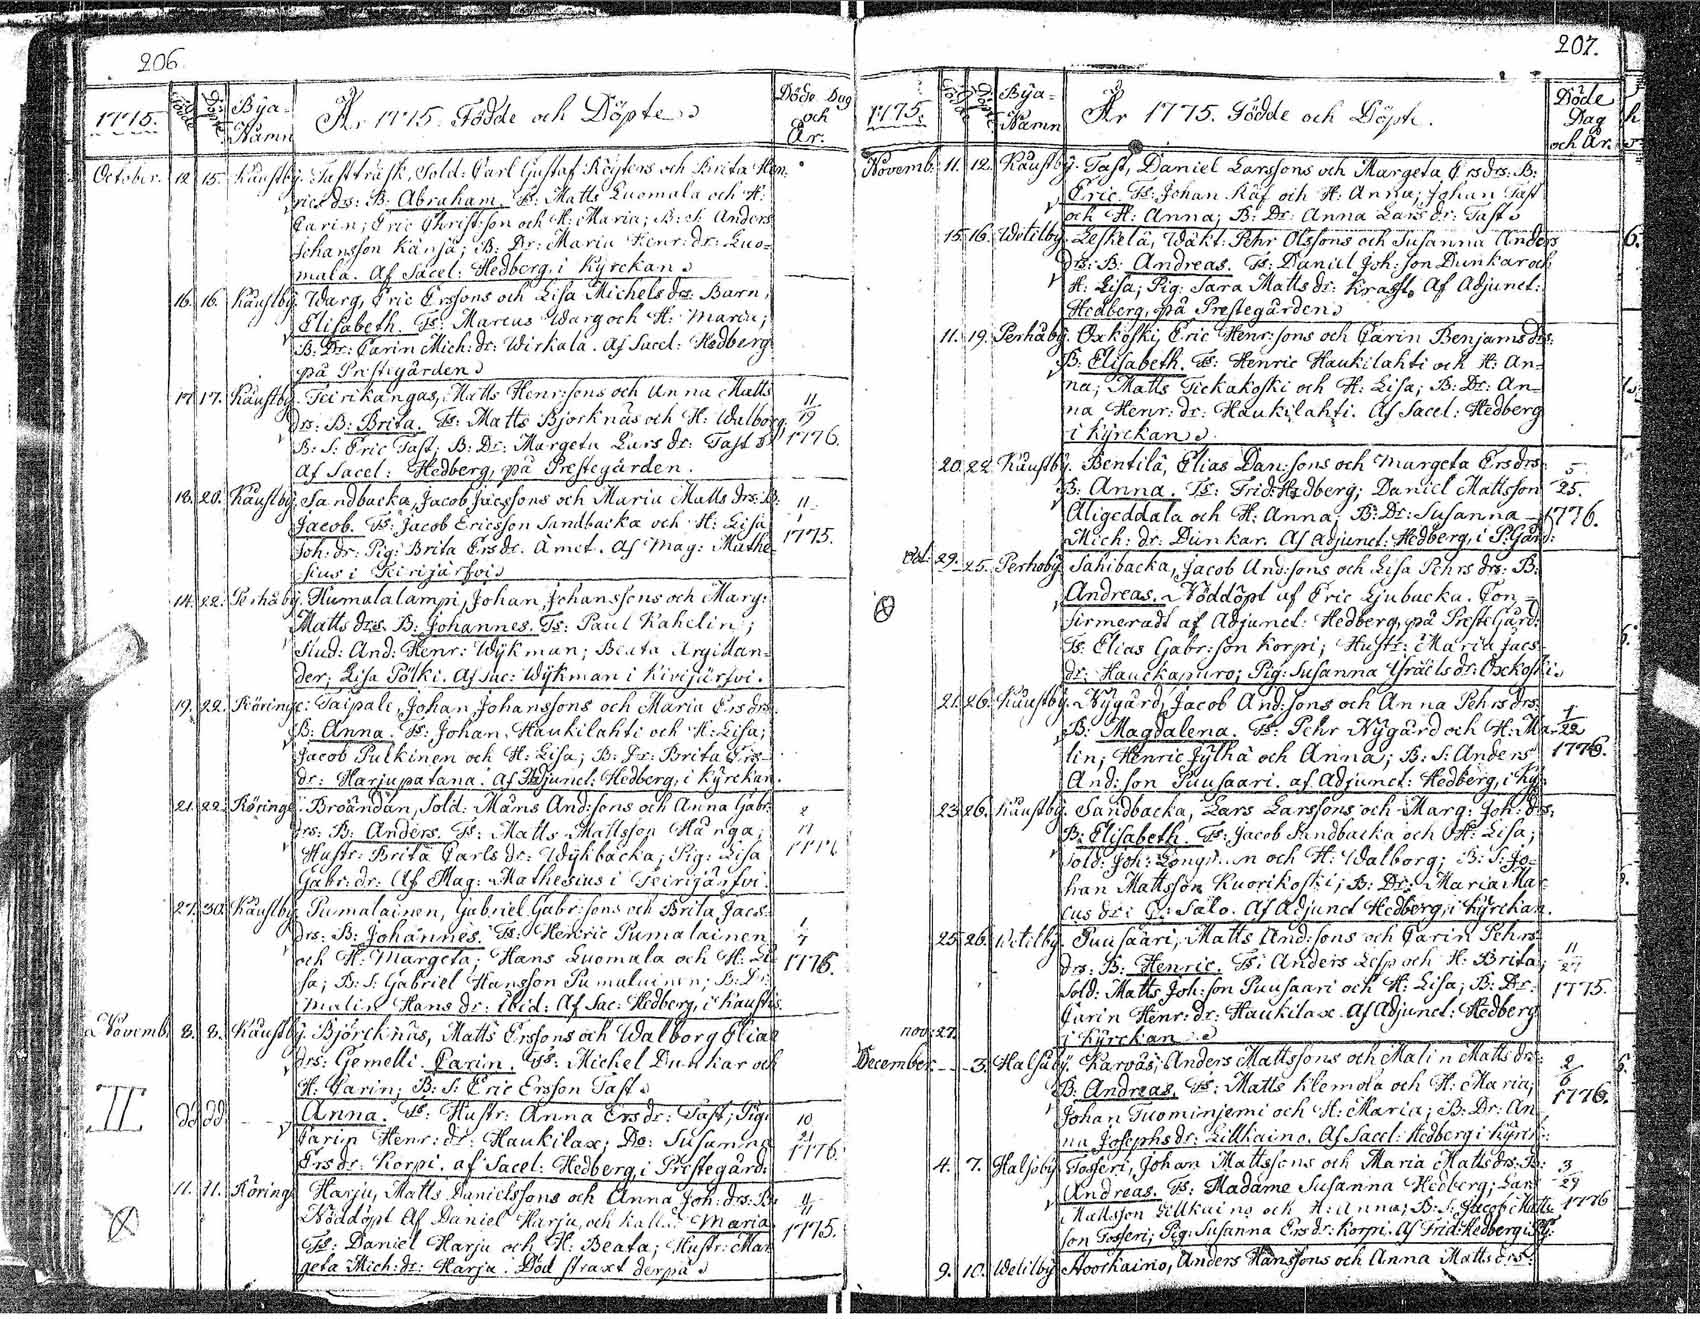 206
1775. Födde Döpte Bÿa- Åhr 1775. Födde och Döpte. Döde Dag
Namn och
År.
October. 12. 15. Kaustbÿ. Tastträsk, Sold: Carl Gustaf Röijters och Brita Hen-
rics drs: B: Abraham. Ts: Matts Luomala och H:
Carin; Eric Christ:son och H: Maria; B: S: Anders
Johansson Känsä; B: Dr: Maria Henr: dr: Luo-
mala. Af Sacel: Hedberg, i Kÿrckan.
16. 16. Kaustbÿ. Warg, Eric Erssons och Lisa Michels drs: Barn,
Elisabeth. Ts: Marcus Warg och H: Maria;
B: Dr: Carin Mich: dr: Wirkala. Af Sacel: Hedberg
på Prestegården.
17. 17. Kaustbÿ. Teirikangas, Matts Henr:sons och Anna Matts 11
drs: B: Brita. Ts: Matts Björcknäs och H: Walborg; 19
B: S: Eric Tast; B: Dr: Margeta Lars dr: Tast. 1776.
Af Sacel: Hedberg, på Prestegården.
18. 20. Kaustbÿ. Sandbacka, Jacob Jacssons och Maria Matts drs: B: 11
Jacob. Ts: Jacob Ericsson Sandbacka och H: Lisa
Joh: dr: Pig: Brita Ers dr. Åmet. Af Mag: Mathe- 1775.
sius i Teirijärfvi.
14. 22. Perhåbÿ. Humalalampi, Johan Johanssons och Marg:
Matts drs. B: Johannes. Ts: Paul Kahelin;
Stud: And: Henr: Wÿkman; Beata Argillan-
der; Lisa Pölki. Af Sac: Wÿkman i Kivijärfvi.
19. 22. Röringe: Taipale, Johan Johanssons och Maria Ers drs:
B: Anna. Ts: Johan Haukilahti och H: Lisa;
Jacob Pulkinen och H: Lisa; B: Dr: Brita Ers-
dr: Harjupatana. Af Adjunct: Hedberg, i Kÿrckan.
21. 22. Röringe: Broändan, Sold: Måns And:sons och Anna Gabr: 2
drs: B: Anders. Ts: Matts Mattsson Hånga;
Hustr: Brita Carls dr: Wÿkbacka; Pig: Lisa
Gabr: dr: Af Mag: Mathesius i Teirijärfvi.
27. 30. Kaustbÿ. Pumalainen, Gabriel Gabr:sons och Brita Jacs- 1
drs: B: Johannes. Ts: Henric Pumalainen 7
och H: Margeta; Hans Luomala och H: Li- 1776.
sa; B: S: Gabriel Hansson Pumalainen; B: Dr:
Malin Hans dr: ibid: Af Sac: Hedberg, i Kaustb.
Novemb. 8. 8. Kaustbÿ. Björcknäs, Matts Erssons och Walborg Elias
drs: Gemelli Carin. Ts: Michel Dunkar och
H: Carin; B: S: Eric Ersson Tast.
II dd dd Anna. Ts: Hustr: Anna Ers dr: Tast; Pig: 10
Carin Henr: dr: Haukilax; Do: Susanna 21
Ers dr: Korpi. af Sacel: Hedberg, i Prestegård: 1776.
11. 11. Röringe Harju, Matts Danielssons och Anna Joh: drs: B: 11
Nöddöpt Af Daniel Harju, och kallas Maria 11
Ts: Daniel Harju och H: Beata; Hustr: Mar- 1775.
geta Mich: dr: Harju. Död straxt derpå.
207.
1775. Födde Döpte Bÿa- Åhr 1775. Födde och Döpte. Döde
Namn Dag
och År.
Novemb. 11. 12. Kaustbÿ. Tast, Daniel Larssons och Margeta Ersdrs: B:
Eric. Ts: Johan Räf och H: Anna; Johan Tast
och H: Anna; B: Dr: Anna Lars dr: Tast.
15. 16. Wetilbÿ. Leskelä, Wäkt: Pehr Olssons och Susanna Anders
drs: B: Andreas. Ts: Daniel Joh:son Dunkar och
H: Lisa; Pig: Sara Matts dr: Kraft. Af Adjunct:
Hedberg, på Prestegården.
11. 19. Perhåbÿ. Oxkoski, Eric Henr:sons och Carin Benjamsdrs:
B: Elisabeth. Ts: Henric Haukilahti och H: An-
na; Matts Tickakoski och H: Lisa; B: Dr: An-
na Henr: dr: Haukilahti. Af Sacel: Hedberg
i Kÿrckan.
20. 22. Kaustbÿ. Bentilä, Elias Dan:sons och Margeta Ers drs: 5
B: Anna. Ts: Frid: Hedberg; Daniel Mattsson 25.
Aligeddala och H: Anna; B: Dr: Susanna 1776.
Mich: dr: Dunkar. Af Adjunct: Hedberg, i P:Gård:
Oct: 29. 25. Perhobÿ. Sahibacka, Jacob And:sons och Lisa Pehrs drs: B:
Andreas. Nöddöpt af Eric Ljubacka. Con-
firmeradt af Adjunct: Hedberg, på PresteGård:
Ts: Elias Gabr:son Korpi; Hustr: Maria Jacs-
dr: Hauckapuro; Pig: Susanna Ysraëls dr: Oxkoski.
21. 26. Kaustbÿ. Nÿgård, Jacob And:sons och Anna Pehrs drs: 1
B: Magdalena. Ts: Pehr Nÿgård och H: Ma- 22
lin; Henric Jÿlhä och Anna; B: S: Anders 1776.
And:son Puusaari. af Adjunct: Hedberg, i Kÿ:
23. 26. Kaustbÿ. Sandbacka, Lars Larssons och Marg: Joh: drs:
B: Elisabeth. Ts: Jacob Sandbacka och H: Lisa;
Sold: Joh: och H: Walborg; B: S: Jo-
han Mattsson Kuorikoski; B: Dr: Maria Mar-
cus dr: Salo. Af Adjunct Hedberg, i Kÿrckan.
25. 26. Wetilbÿ. Puusaari, Matts And:sons och Carin Pehrs- 11
drs: B: Henric. Ts: Anders Lesp och H: Brita; 27
Sold: Matts Joh:son Puusaari och H: Lisa; B: Dr: 1775.
Carin Henr: dr: Haukilax. Af Adjunct: Hedberg
nov: 27. i Kÿrckan.
December. 3. Halsobÿ. Karvås, Anders Mattssons och Malin Matts drs: 2
B: Andreas. Ts: Matts Klemola och H: Maria; 6
Johan Tuominjemi och H: Maria; B: Dr: An- 1776.
na Josephs dr: Lillkaino. Af Sacel: Hedberg i Kÿrck:
4. 7. Halsobÿ. Tofferi, Johan Mattssons och Maria Matts drs: B: 3
Andreas. Ts: Madame Susanna Hedberg; Lars 29
Mattsson Lillkaino och H: Anna; B: S: Jacob Matts- 1776
son Tofferi; Pig: Susanna Ers dr: Korpi. Af Frid: Hedberg i
9. 10. Wetilbÿ Stoorkaino, Anders Hanssons och Anna Matts drs: